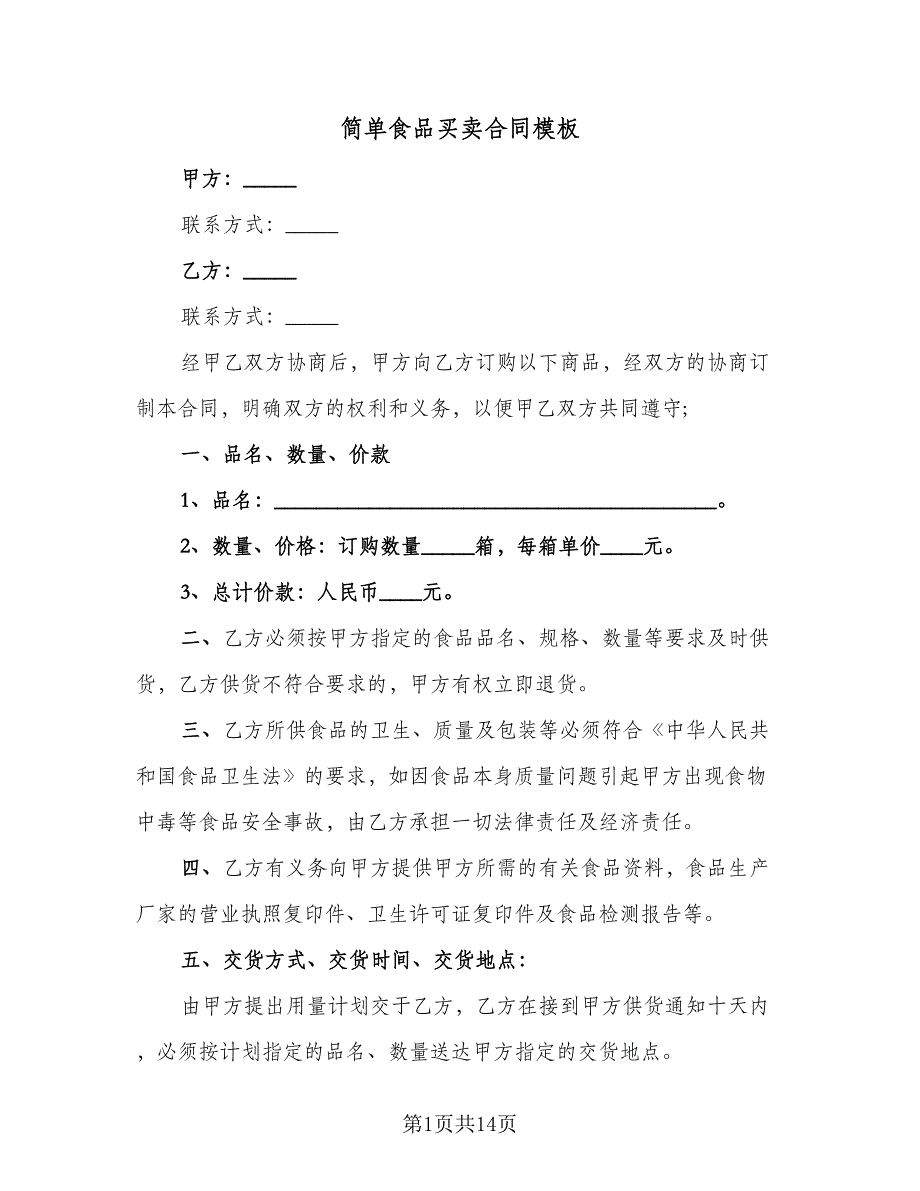 简单食品买卖合同模板
甲方：_____
联系方式：_____
乙方：_____
联系方式：_____
经甲乙双方协商后，甲方向乙方订购以下商品，经双方的协商订
制本合同，明确双方的权利和义务，以便甲乙双方共同遵守;
一、品名、数量、价款
1、品名：__________________________________________。
2、数量、价格：订购数量_____箱，每箱单价____元。
3、总计价款：人民币____元。
二、乙方必须按甲方指定的食品品名、规格、数量等要求及时供
货，乙方供货不符合要求的，甲方有权立即退货。
三、乙方所供食品的卫生、质量及包装等必须符合《中华人民共
和国食品卫生法》的要求，如因食品本身质量问题引起甲方出现食物
中毒等食品安全事故，由乙方承担一切法律责任及经济责任。
四、乙方有义务向甲方提供甲方所需的有关食品资料，食品生产
厂家的营业执照复印件、卫生许可证复印件及食品检测报告等。
五、交货方式、交货时间、交货地点：
由甲方提出用量计划交于乙方，乙方在接到甲方供货通知十天内
，必须按计划指定的品名、数量送达甲方指定的交货地点。
第1页共14页